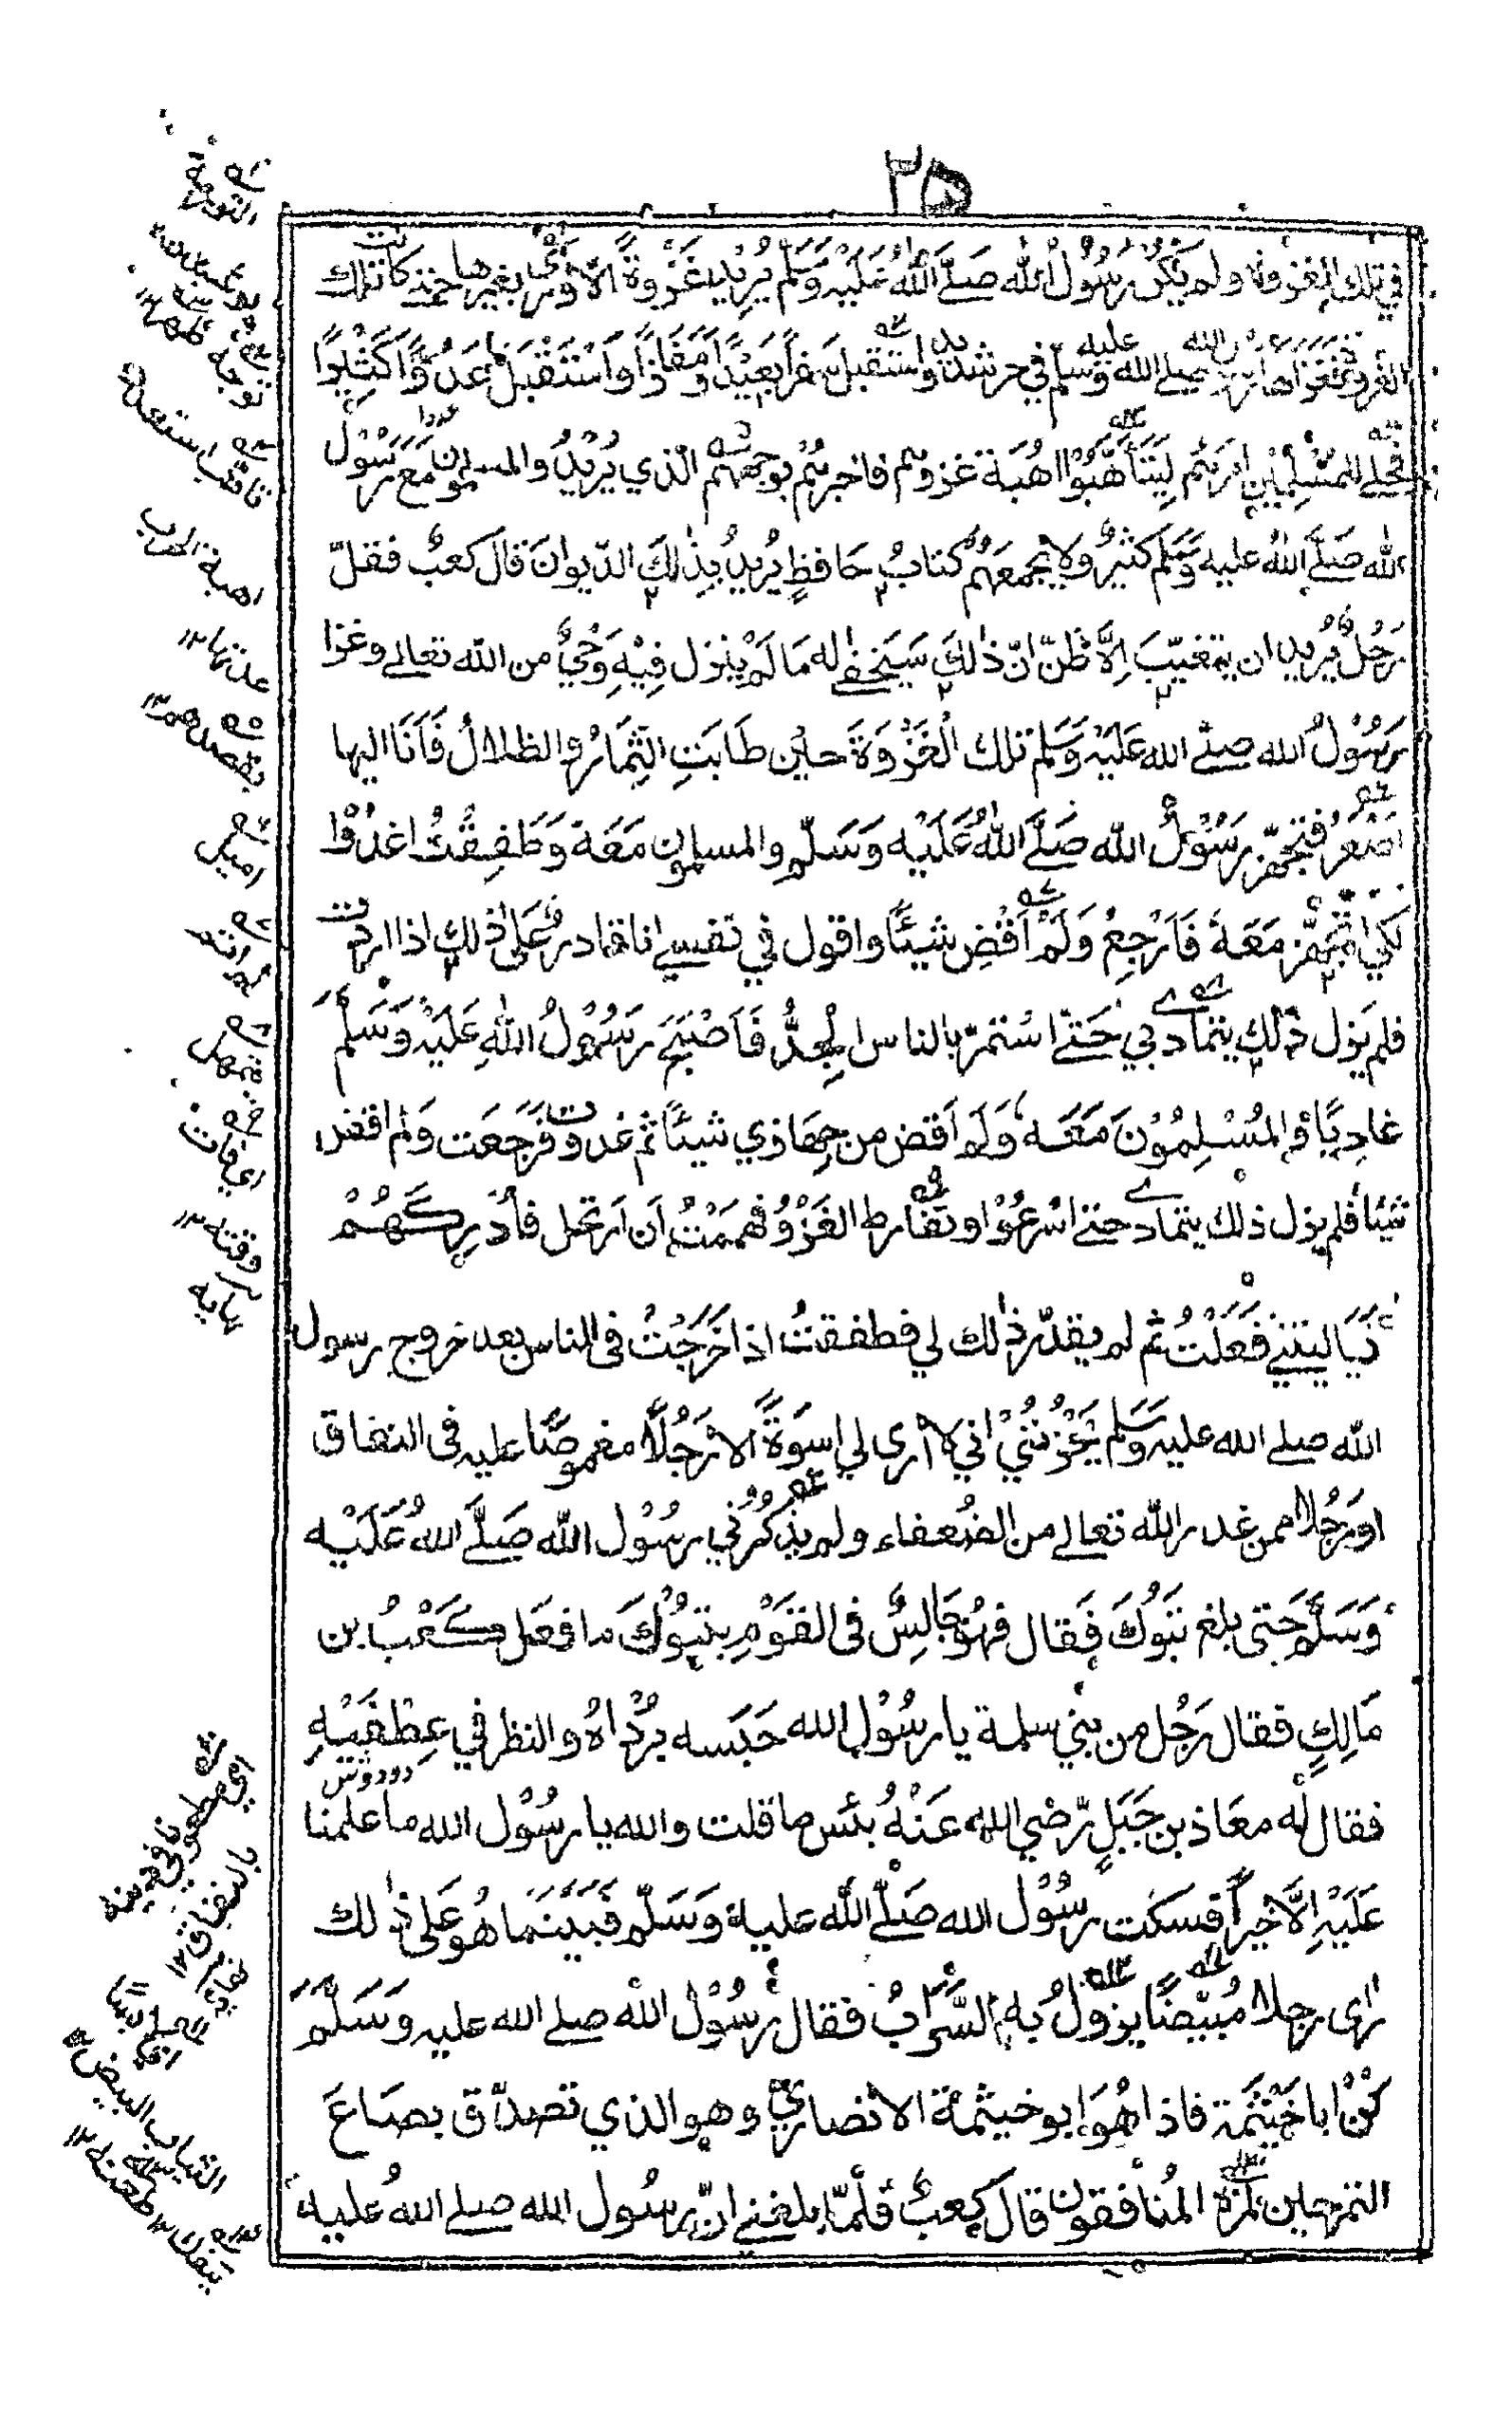 ٢٥
في تلك الغزوة ولم يكن رَسُوْلُ الله صَلَّے اللهُ عَلَيْهِ وَسَلَّم يُرِيْد غَزْوَةً الّا وَرّٰى بغيرها حتى كانت تلك
الغزوة فغزاها رسول الله صلے الله عليه وسلّم في حر شديد واستقبل سَفَراً بَعِيْداً وَمَفَازاً وَاسْتَقْبَلَ عَدُوًّا كَثِيراً
فجلے للمُسْلِمِيْنَ امرَهُم لِيَتَأَهَّبُوْا اهُبَةَ غزوهم فاخبرهُم بوجههم الذي يُرِيْدُ والمسلمون مَعَ رَسُوْل
الله صَلَّے اللهُ عليه وَسَلَّم كثيرٌ ولا يجمعَهُم كتابُ حَافظٍ يُرِيدُ بِذٰلِكَ الدّيوانَ قالَ كعبٌ فقلّ
رَجُلٌ يُرِيد ان يتغيّبَ اِلَّا ظَنّ انّ ذٰلكَ سَيَخفٰے له مَا لَمْ ينزل فِيْهِ وَحْيٌ من الله تعالے وغزا
رَسُوْلُ الله صلّے الله عَلَيْه وَسَلّم تلك الْغَزْوَةَ حين طَابَتِ الثِّمَارُ والظلالُ فَأَنَا اليها
اَصْعَرُ فتجهّز رَسُوْلُ الله صَلَّے اللهُ عَلَيْه وَسَلّم والمسلمون مَعَهُ وَطَفِقْتُ اغدُوْا
لكي اَتَجَهَّز مَعَهُ فَاَرْجِعُ وَلَمْ اَقْضِ شيئاً واقول في نفسے انا قادر عَلٰى ذٰلِك اذا اردت
فلم يَزل ذٰلِك يتمادے بي حَتّے اسْتمرّ بالناس الْجِدُّ فَاَصْبَحَ رَسُوْلُ اللهِ عَلَيْهِ وَسَلَّمَ
غادِيًا وَالمُسْلِمُوْنَ مَعَه وَلَم اَقض من جِهَازي شيئاً ثم غدوت فَرَجَعَت وَلم اقض
شيئا فلم يزل ذلك يتمادے حتے اسْرعُوْا وتفارط الغَزْوُ فهممْتُ اَن اَرتحل فأُدْرِكَهُمْ
يَا ليتنے فَعَلْتُ ثم لم يقدّر ذٰلك لي فطفقتُ اذا خَرَجْتُ فى الناس بعد خروج رسول
الله صلے الله عليه وسلم يُحْزِنُنِيْ اني لا ارى لي اسوَةً الا رَجُلًا مغموصًا عليه فى النفاق
او رَجُلا ممن عذر الله تعالے من الضُعفاء ولم يذكُرْني رسُوْل الله صَلَّے اللهُ عَلَيْه
وَسَلَّمَ حتى بلغ تَبُوْكَ فَقال وهُوَ جَالِسٌ فى القَوْمِ بتبُوْكَ ما فعَل كَعْبُ بن
مَالِكٍ فقال رَجُل من بَنِي سلمة يا رسُوْل الله حَبَسه بُرْدَاهُ والنظر في عِطْفَيْهِ
دو دوش
فقال لَه معَاذ بن جَبَلٍ رّضي الله عَنْهُ بئس ما قلت والله يا رسُوْل الله ما علمنا
عَلَيْهِ اِلَّا خيراً فسكت رسُوْل الله صَلّے الله عليه وَسَلّم فبَينَمَا هُوَ عَلٰى ذٰلك
رٰاى رجلا مُبَيّضًا يزولُ بِهِ السَّرَابُ فقال رَسُوْل الله صلے الله عليه وَسَلَّمَ
كُنْ ابا خَيْثَمَة فاذا هُوَ ابو خيثمة الانصاريّ وهو الذي تصدّق بصَاعَ
التمر حين لمزَهُ المُنافقون قالَ كعبٌ فَلَمّا بلغنے انّ رسُول الله صلے اللهُ عليه
التورية
ناقة استعداد
اهبة الحرب
عدتها ١٢
اميل
اي فات
وقته ١٢
نهايه
اي مطعون في دينه
بالنفاق
الثياب البيض